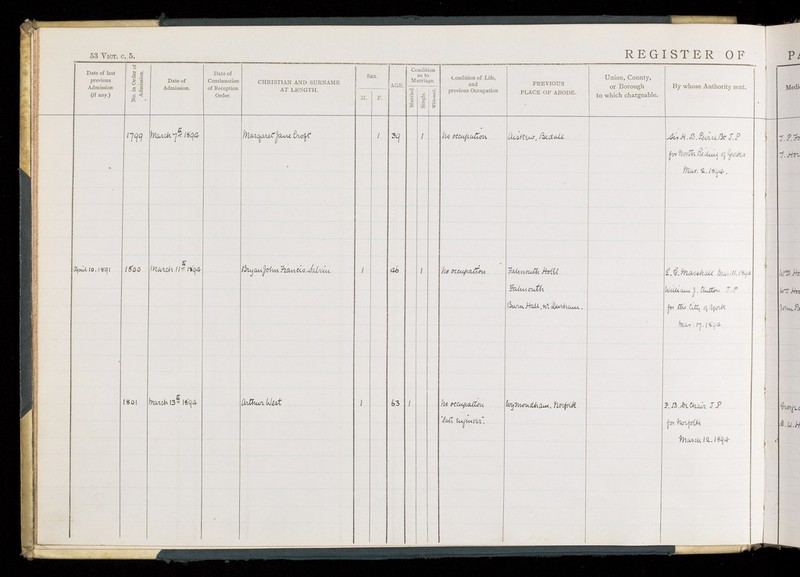 53 VICT. C. 5.
REGISTER OF
Date of last previous Admission (if any.)
No. in Order of Admission.
Date of Admission.
Date of Continuation of Reception Order.
CHRISTIAN AND SURNAME AT LENGTH.
SEX.
M.
F.
AGE.
Condition as to Marriage.
Married.
Single.
Widowed.
Condition of Life, and previous Occupation
PREVIOUS PLACE OF ABODE.
Union, County, or Borough to which chargeable.
By whose Authority sent.
1799 March 7th 1894 Margaret Jane Croft 1 39 1 No occupation Bedale
J.P.
for North Riding of Yorks
Mar. 2. 1894.
April 10. 1891 1800 March 11th 1894 Bryan John Francis Salvin 1 46 1 No occupation Falmouth Hotel
Falmouth
Burn Hall, nr Durham.
Marshall Mar. 11. 1894
William J. Clutton J.P
for the City of York
Mar. 17. 1894
1801 March 13th 1894 Arthur West 1 63 1 No occupation Wymondham, Norfolk
"late Engineer".
J.P
for Norfolk
March 12. 1894